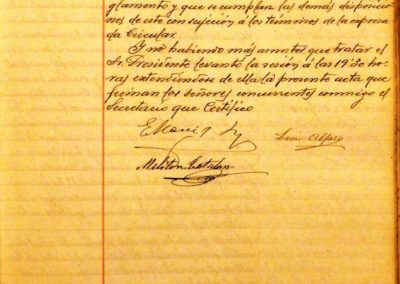 glamento y que se cumplan las demás disposicio
nes de este con sujeción á los términos de la expresa
da Circular.
Y no habiendo más asuntos que tratar el
Sr. Presidente levantó la sesión á las 19 30 ho
ras extendiéndose de ella la presente acta que
firman los señores concurrentes conmigo el
Secretario que Certifico
Melitón Catalan